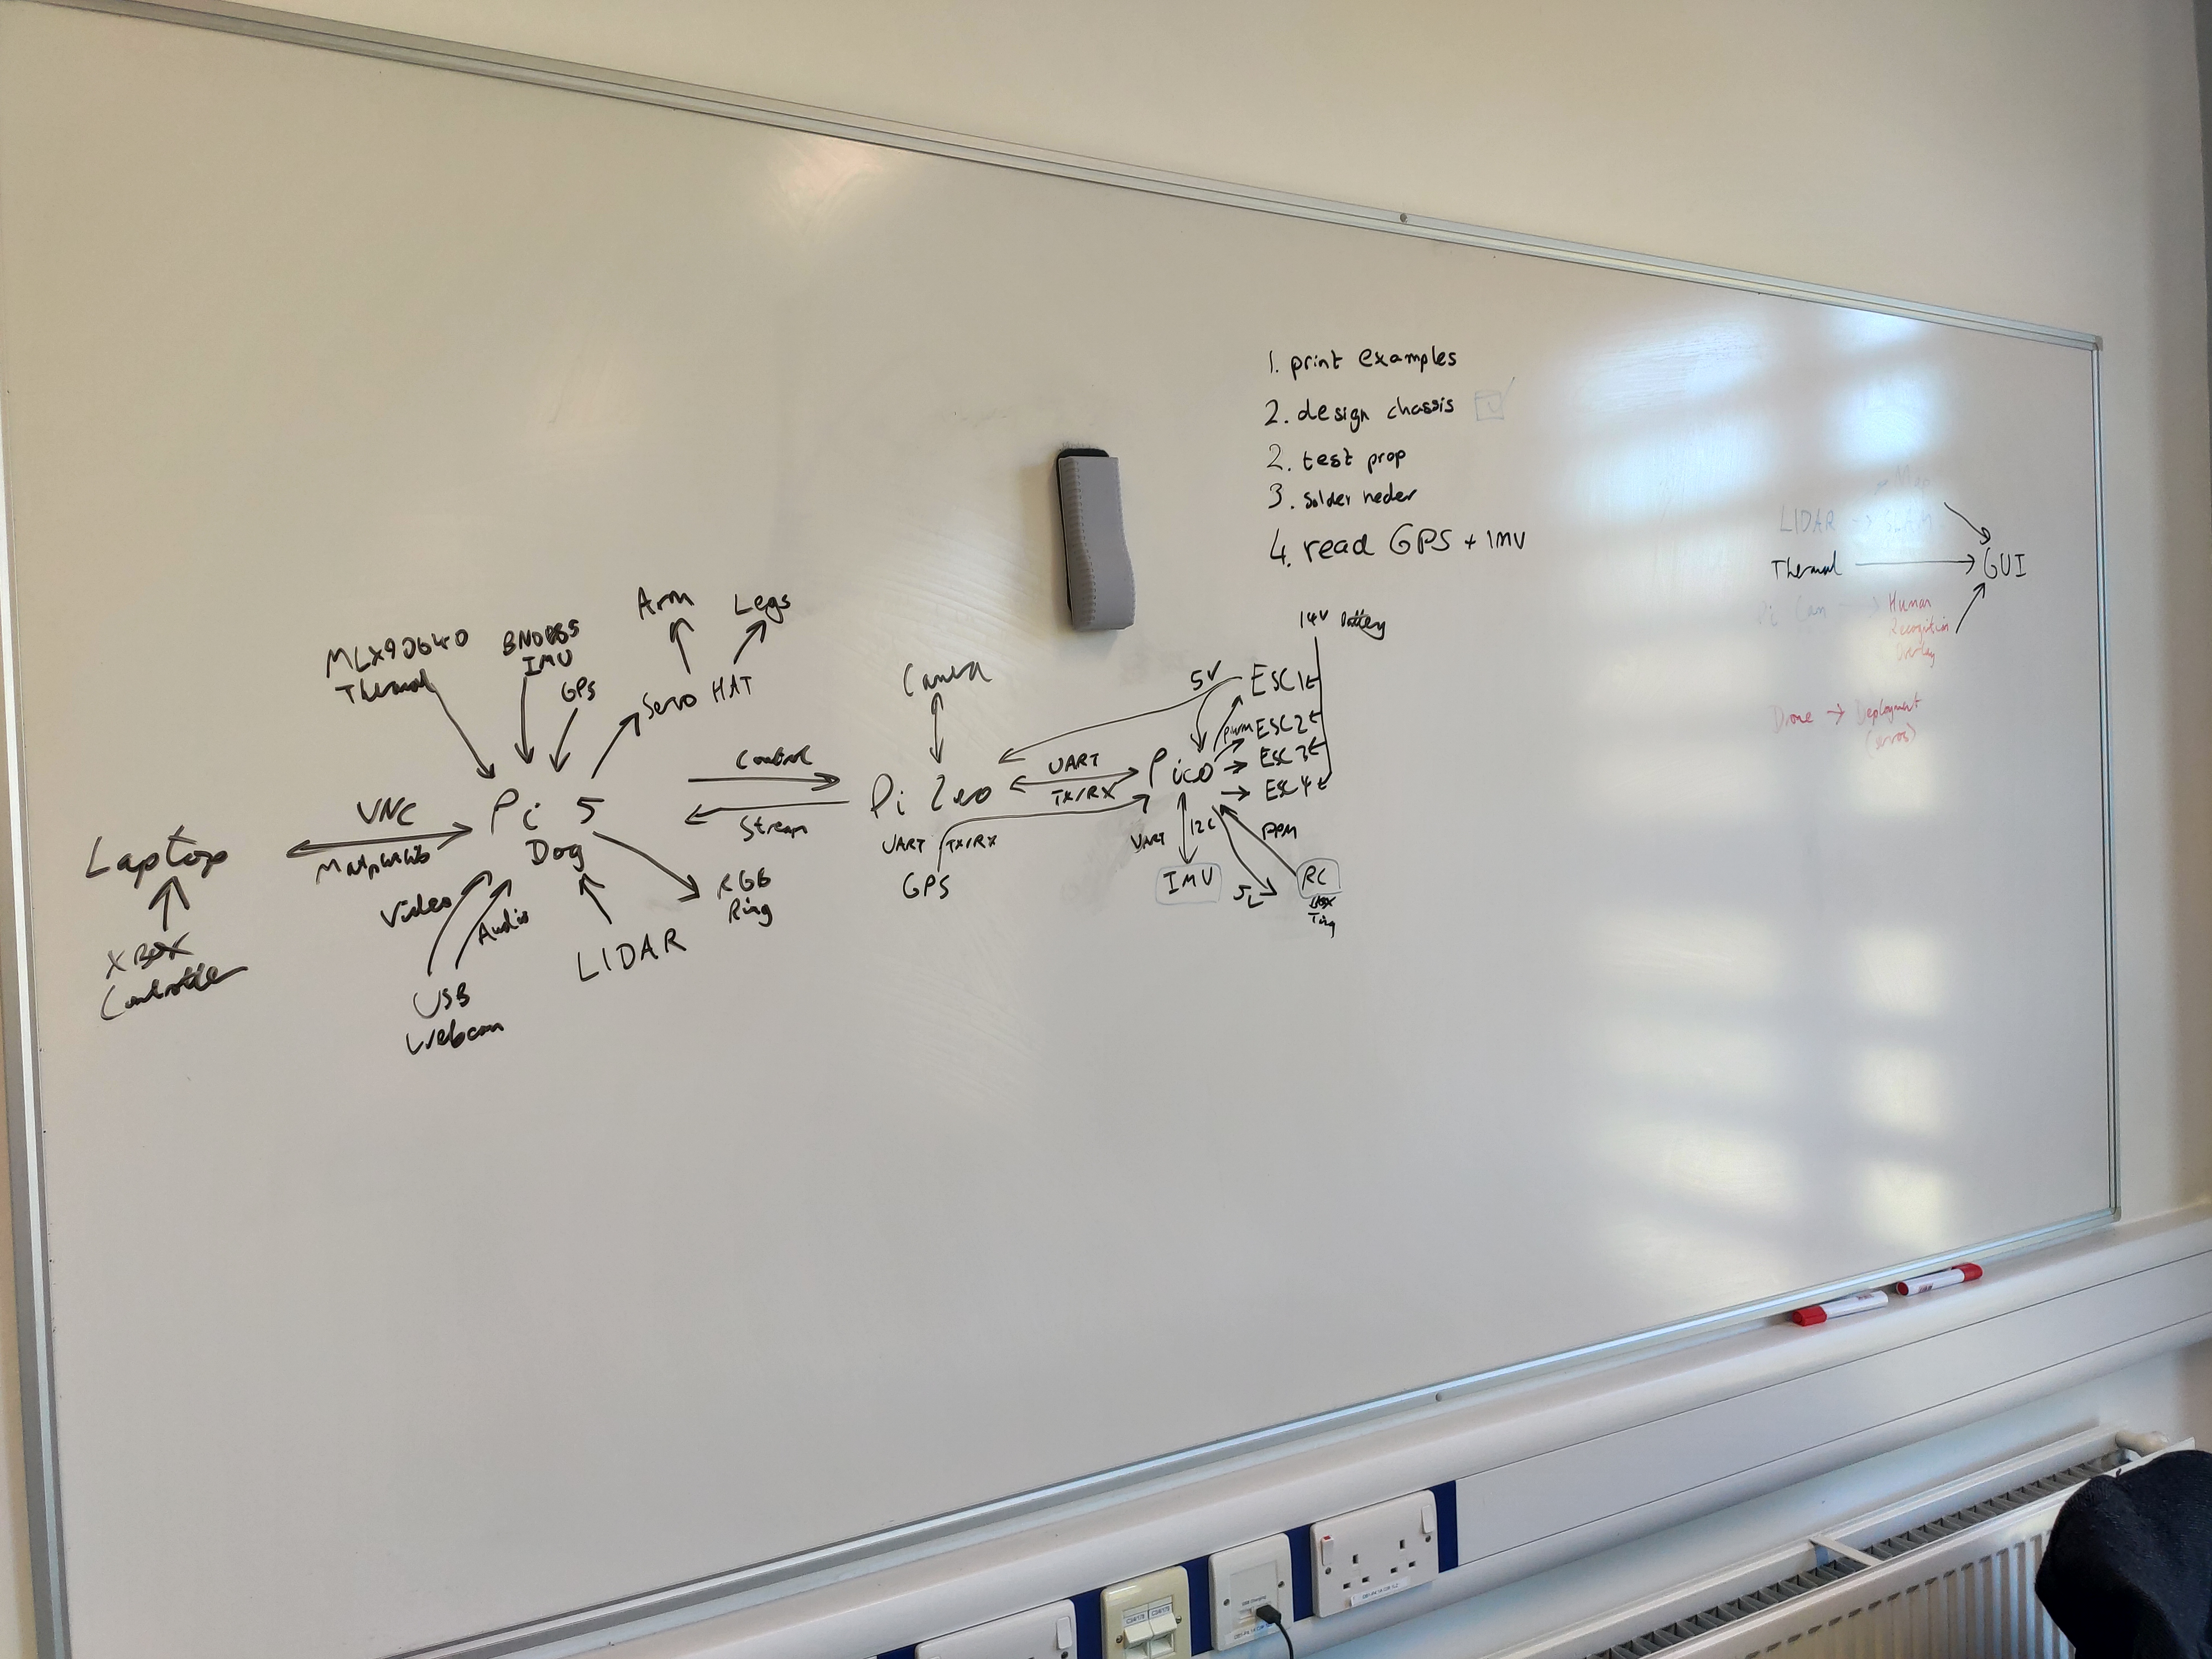 1. print examples
2. design chassis
2. test prop
3. solder heder
4. read GPS + IMU
MLX90640
Thermal
BNO085
IMU
GPS
Arm
Legs
Servo HAT
Pi 5
Dog
VNC
Matplotlib
Laptop
XBOX
Controller
Video
Audio
USB
Webcam
LIDAR
RGB
Ring
Control
Stream
Camera
Pi Zero
UART
TX/RX
UART TX/RX
GPS
Pico
5V
14V Battery
ESC1
PWM ESC2
ESC3
ESC4
UART I2C
IMU
PPM
RC
Map
LIDAR → SLAM
Thermal
GUI
Pi Cam → Human
Recognition
Overlay
Drone → Deployment
(servos)